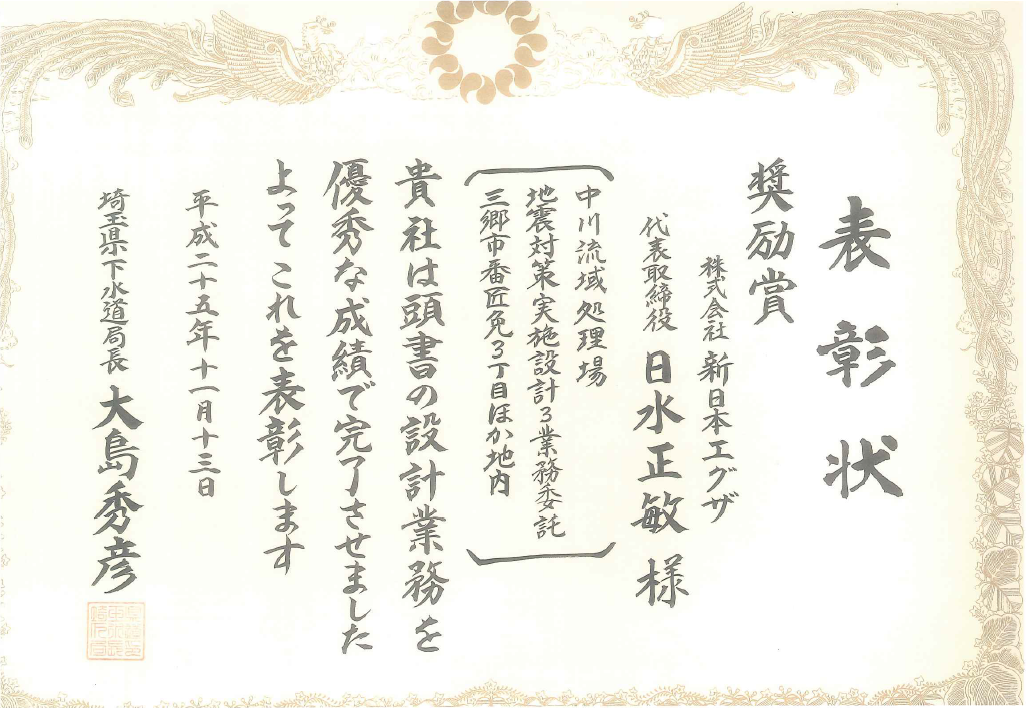 表彰状
奨励賞
株式会社 新日本エグザ
代表取締役 日水正敏 様
中川流域処理場
地震対策実施設計3業務委託
三郷市番匠免3丁目ほか地内
貴社は頭書の設計業務を
優秀な成績で完了させました
よってこれを表彰します
平成二十五年十一月十三日
埼玉県下水道局長 大島秀彦